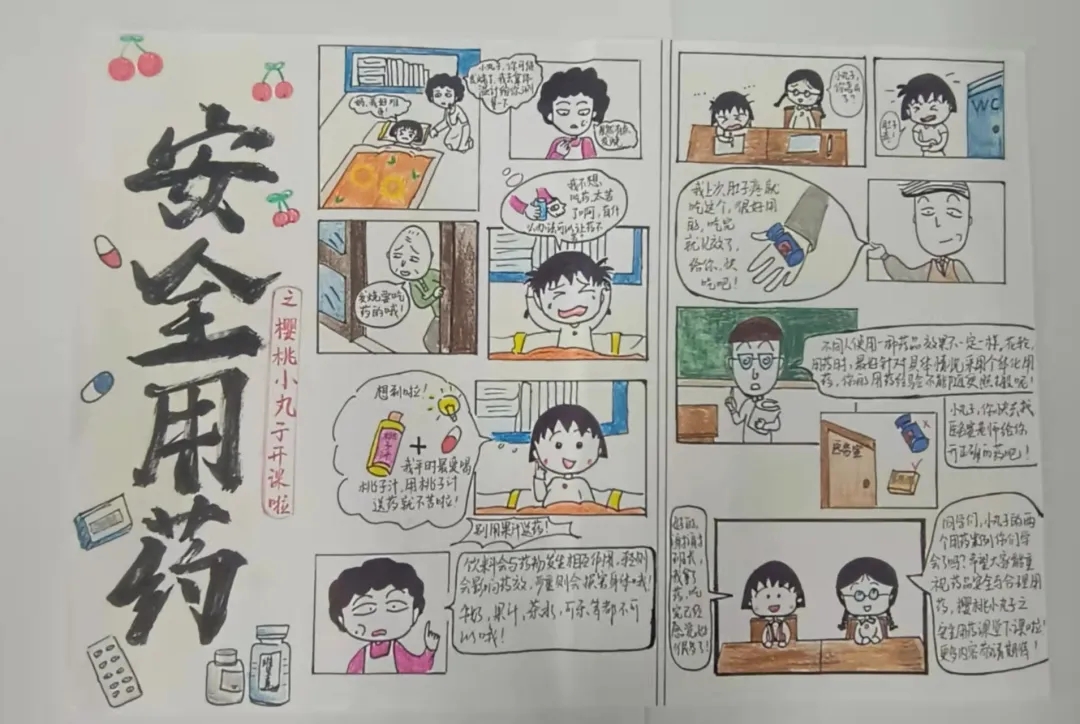 安全用药
之樱桃小丸子开课啦
妈，我好难
受！
小丸子，你可能
发烧了，我去拿体
温计给你测
量一下
果然有点
发烧
发烧要吃
药的哦！
我不想
吃药，太苦
了啊，有什
么办法可以让药不
苦
想到啦！
桃子汁
+
我平时最爱喝
桃子汁，用桃子汁
送药就不苦啦！
别用果汁送药！
饮料会与药物发生相互作用，轻则
会影响药效，严重则会损害身体哦！
牛奶，果汁，茶水，可乐等都不可
以哦！
小丸子，
你怎么
了？
肚子
痛！
WC
我上次肚子疼就
吃这个，很好用
的，吃完
就见效了，
给你，快
吃吧！
不同人使用一种药品效果不一定一样。在我们
用药时，最好针对具体情况采用个体化用
药，你的用药经验不能直接照搬呢！
小丸子，你快去找
医务室老师给你
开正确的药吧！
医务室
x
好的，
谢谢
班长，
我拿了
药，吃
完已经
感觉好
很多了！
同学们，小丸子的两
个用药案例你们学
会了吗？希望大家能重
视药品安全与合理用
药，樱桃小丸子之
安全用药课堂下课啦！
更多内容敬请期待！